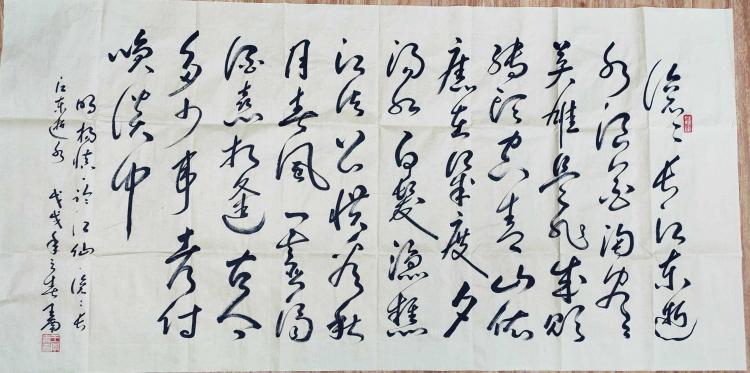 滚滚长江东逝
水浪花淘尽
英雄是非成败
转头空青山依
旧在几度夕
阳红白髮渔樵
江渚上惯看秋
月春風一壶浊
酒喜相逢古今
多少事都付
笑谈中
明杨慎临江仙滚滚长
江东逝水 戊戌年之春